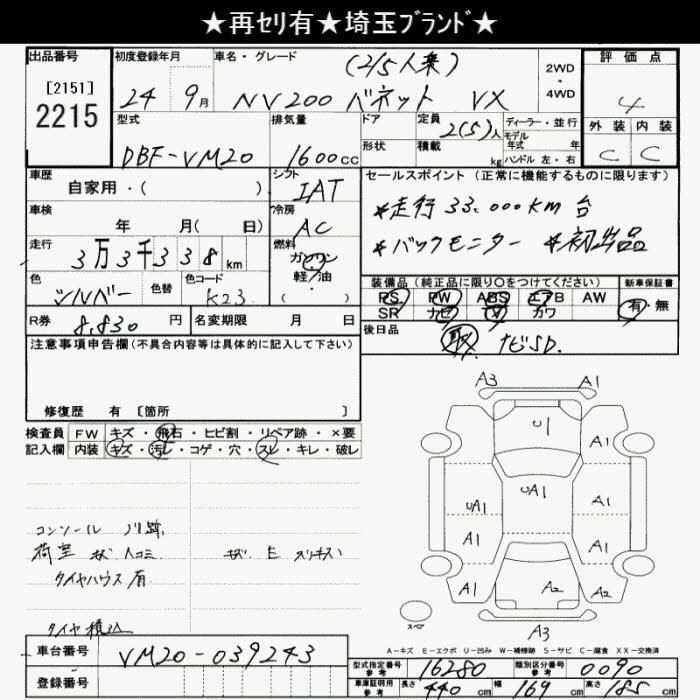 ★再ｾﾘ有★埼玉ﾌﾞﾗﾝﾄﾞ★
出品番号
[2151]
2215
初度登録年月
24 9月
車名・グレード
(2/5人乗)
NV200 バネット VX
2WD
・
4WD
評価点
4
外装 内装
C C
型式
DBF-VM20
排気量
1600cc
ドア
形状
定員
2(5)人
積載 kg
ディーラー・並行
モデル
年式 年
ハンドル 左・右
車歴
自家用・( )
シフト
IAT
車検
年 月( 日)
冷房
AC
走行
3万3千338km
燃料
ガソリン
軽油
( ・ )
色
シルバー
色替
色コード
K23
R券 8,830円
名変期限 月 日
セールスポイント(正常に機能するものに限ります)
*走行 33.000KM 台
*バックモニター *初出品
装備品(純正品に限り○をつけてください)
PS PW ABS エアB AW
SR ナビ TV カワ
新車保証書
有・無
後日品
取 ナビSD.
注意事項申告欄(不具合内容等は具体的に記入して下さい)
修復歴 有 [箇所 ]
検査員
記入欄
FW キズ・飛石・ヒビ割・リペア跡・×要
内装 キズ・汚レ・コゲ・穴・スレ・キレ・破レ
コンソール ノリ跡
荷室 キズ ヘコミ キズ E スリキズ
タイヤハウス 有
タイヤ積込
A3 A1
U1
A1
UA1
UA1 A1
A1 A2 A2
A3
スペア
A-キズ E-エクボ U-凹み W-補修跡 S-サビ C-腐食 XX-交換済
車台番号 VM20-039243
登録番号
型式指定番号
参考
16280
類別区分番号
参考
0090
車庫証明用
参考
長さ 440cm 幅 169cm 高さ 185cm